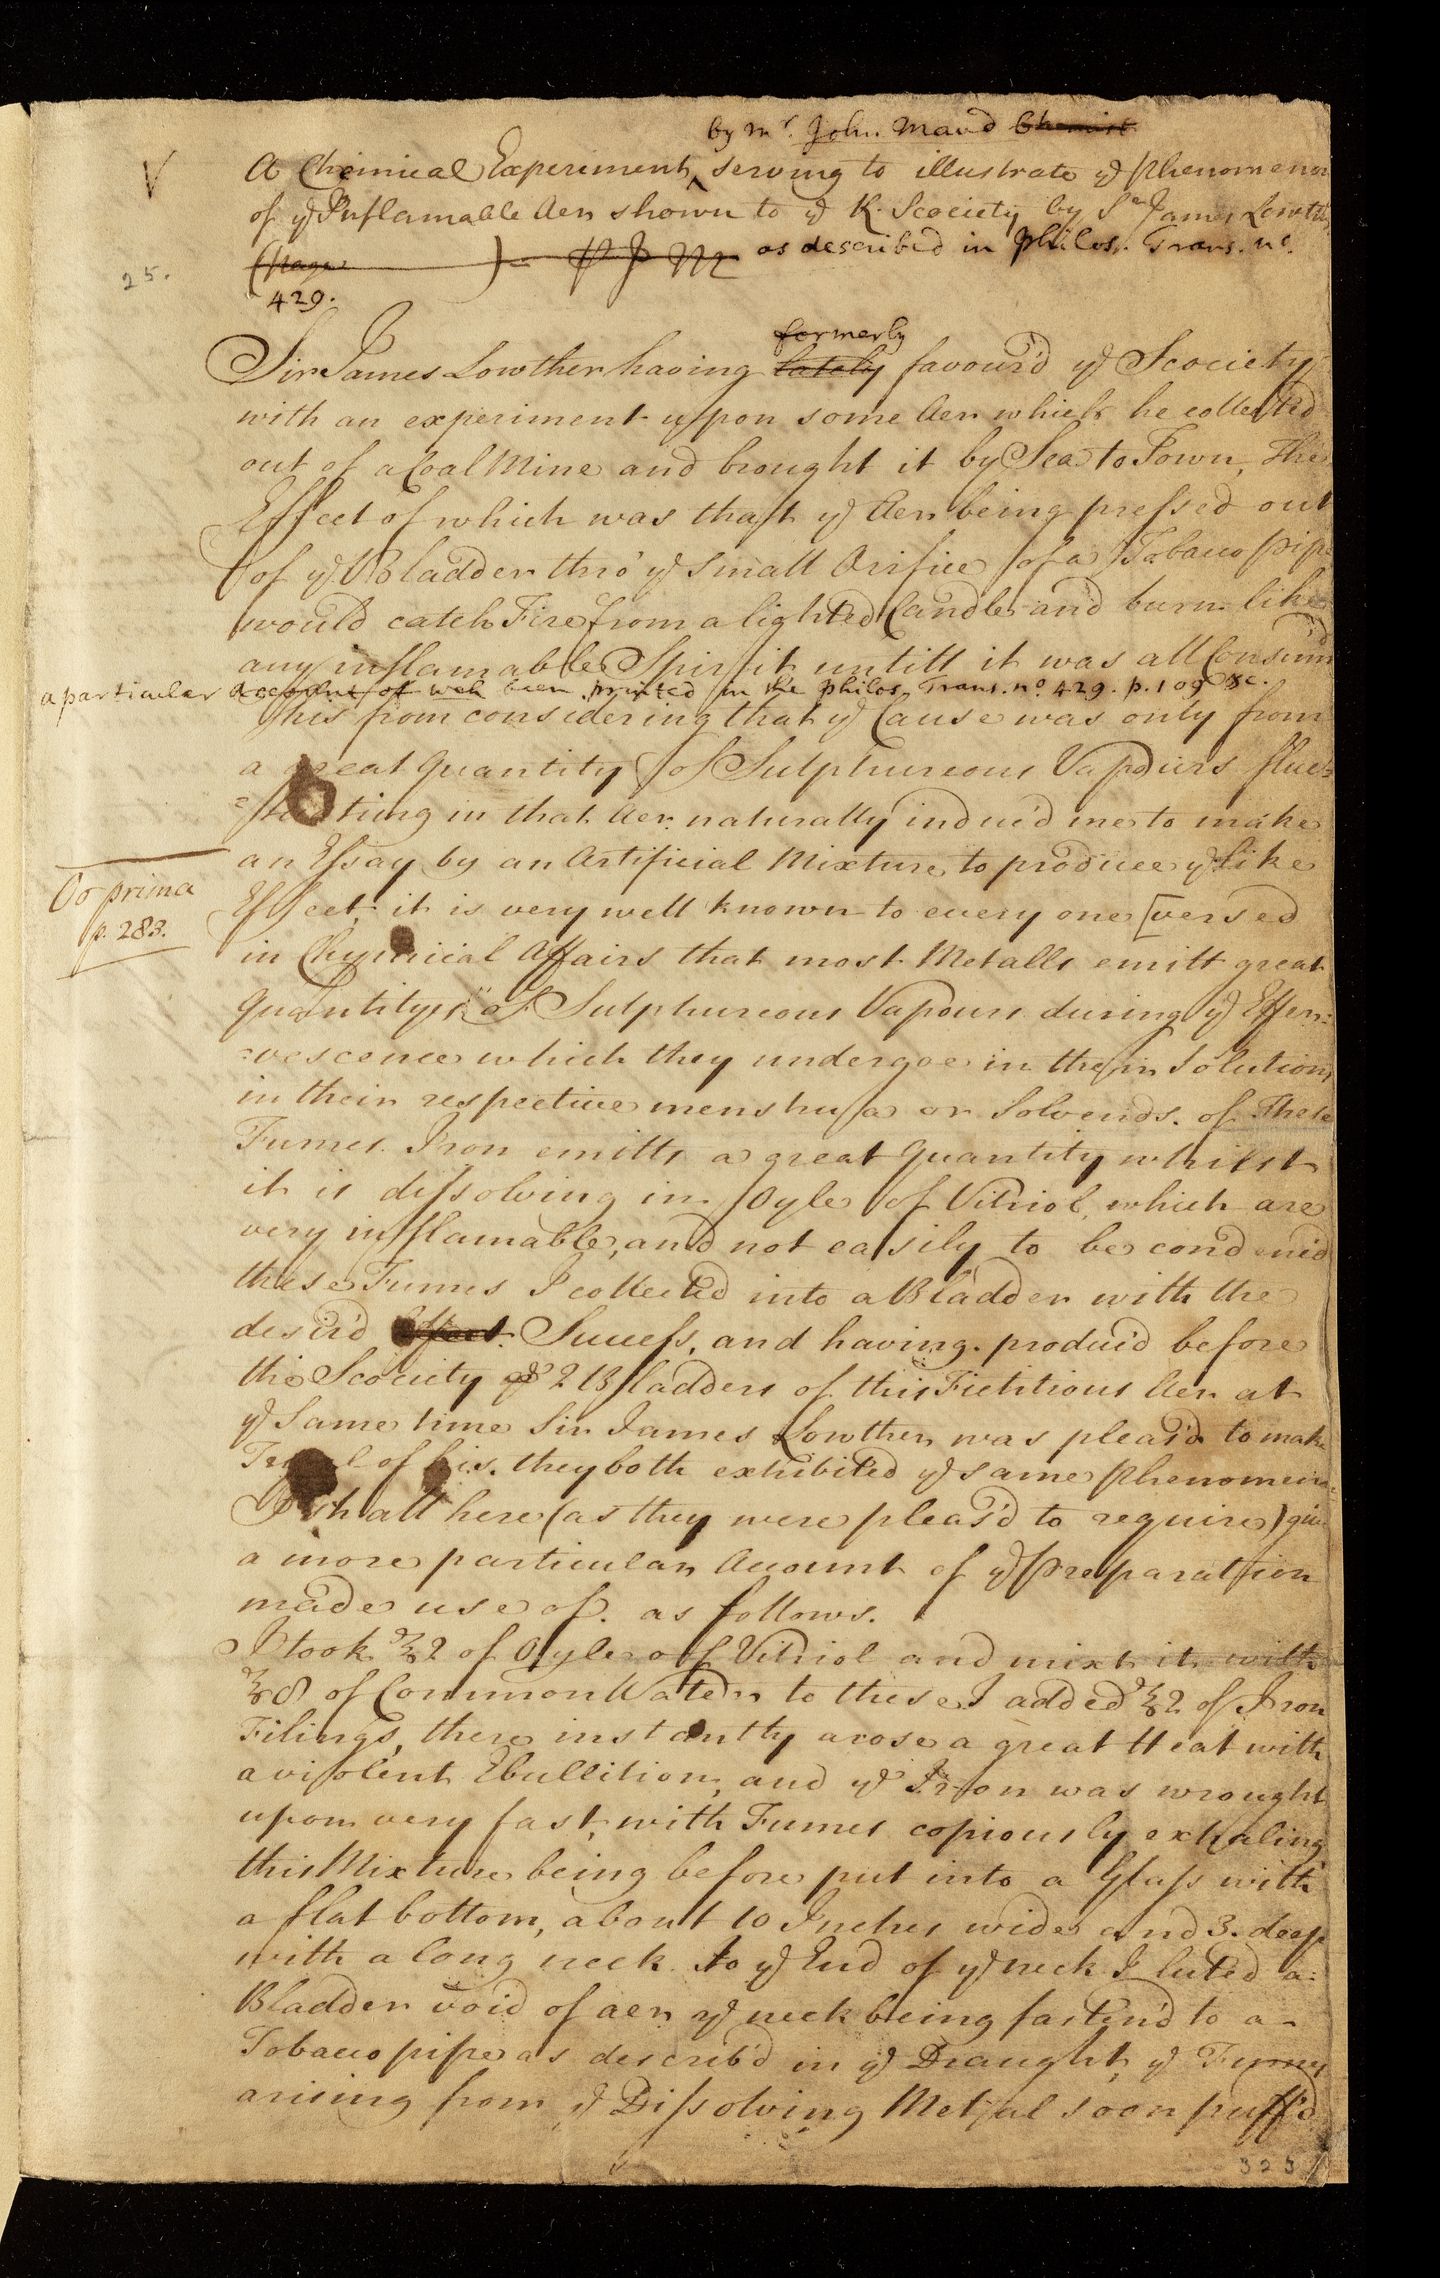 by mr. John Maud Chemist
V
A Chimical Experiment, serving to illustrate ye Phenomenon
of ye Inflamable Aer shown to ye R. Scociety by Sr James Lowth
25.
(Page ) as described in Philos. Trans. no.
429.
Sir James Lowther having lately formerly favour'd ye Scociety
with an experiment upon some Aer which he collected
out of a Coal Mine and brought it by Sea to Town, The
Effect of which was that ye Aer being pressed out
of ye Bladder thro' ye small Orifice of a Tobacco pipe
would catch Fire from a lighted Candle and burn like
any inflamable Spirit untill it was all Consum'd
a particular account of wch been printed in the philos. Trans. no 429. p. 109 &c.
This from considering that ye Cause was only from
a great Quantity of Sulphureous Vapours fluc=
=tuating in that Aer naturally induc'd me to make
an Essay by an Artificial Mixture to produce ye like
Oo prima
p. 283.
Effect, it is very well known to every one [versed
in Chymical Affairs that most Metalls emitt great
Quantitys of Sulphureous Vapours during ye Effer=
=vescence which they undergoe in their Solutions
in their respective menstrua or Solvends. of These
Fumes Iron emitts a great Quantity whilst
it is dissolving in Oyle of Vitriol, which are
very inflamable, and not easily to be condens'd
these Fumes I collected into a Bladder with the
desir'd Effect. Success, and having produc'd before
the Scociety 2 Bladders of this Fictitious Aer at
ye same time Sir James Lowther was pleas'd to make
Tryal of his. they both exhibited ye same Phenomena
I shall here (as they were pleas'd to require) give
a more particular Account of ye Preparation
made use of. as follows.
I took ℥2 of Oyle of Vitriol and mixt it with
℥8 of Common Water to these I added ℥2 of Iron
Filings, there instantly arose a great Heat with
a violent Ebullition, and ye Iron was wrought
upon very fast, with Fumes copiously exhaling
this Mixture being before put into a Glass with
a flat bottom, about 10 Inches wide and 3. deep
with a long neck. to ye End of ye neck I luted a
Bladder void of aer ye neck being fasten'd to a
Tobacco pipe as describ'd in ye Draught, ye Fumes
arising from ye Dissolving Metal soon puff'd
323